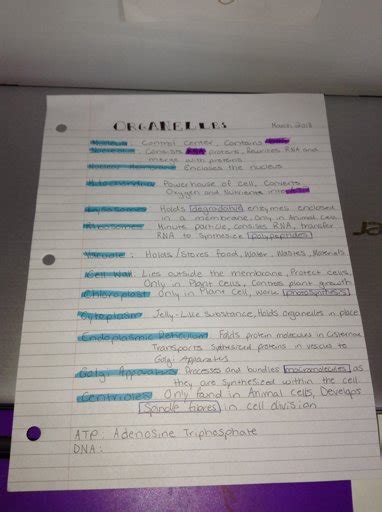 ORGANELLES March 2013
Nucleus : Control Center, Contains
Nucleolus : Consists RNA proteins, Rewrites RNA and
merge with proteins
Nuclear Membrane: Encloses the nucleus
Mitochondria: Powerhouse of cell, Converts
Oxygen and Nutrients into
Lysosomes: Holds degradative enzymes enclosed
in a membrane, Only in Animal Cells
Ribosomes: Minute particle, consists RNA, transfer
RNA to Synthesize polypeptides
Vacuole : Holds/Stores food, Water, Wastes, Materials
Cell Wall: Lies outside the membrane, Protect cells,
Only in Plant Cells, Controls plant growth
Chloroplast: Only in Plant Cell, Work
Cytoplasm: Jelly-Like Substance, Holds organelles in place
Endoplasmic Reticulum: Folds protein molecules in Cisternae
Transports Synthesized proteins in
Golgi Apparatus
Golgi Apparatus: Processes and bundles macromolecules as
they are Synthesized within the cell
Centrioles: Only found in Animal Cells, Develops
Spindle fibres in cell division
ATP: Adenosine Triphosphate
DNA: